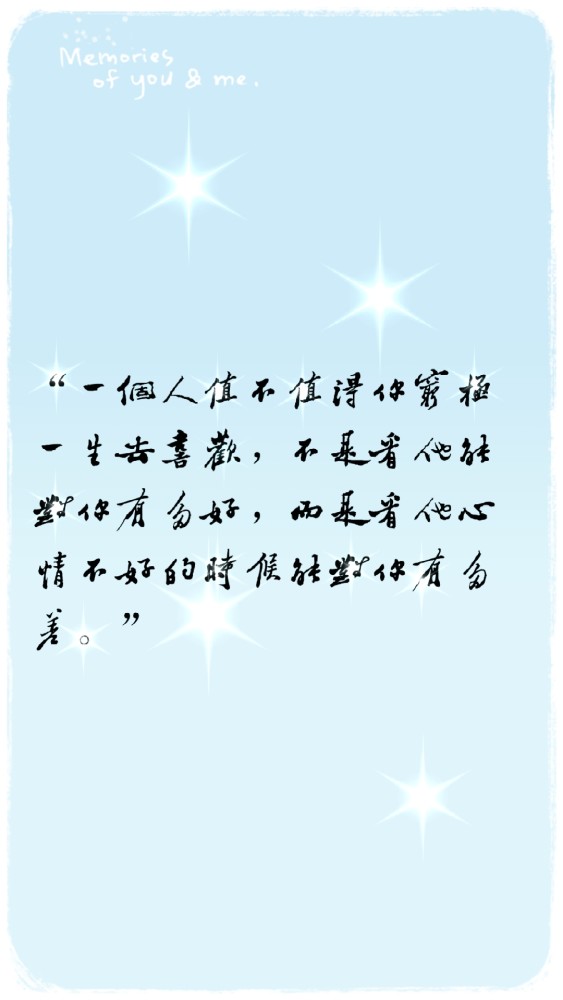 Memories
of you & me.
“一個人值不值得你窮極
一生去喜歡，不是看他能
對你有多好，而是看他心
情不好的時候能對你有多
善。”